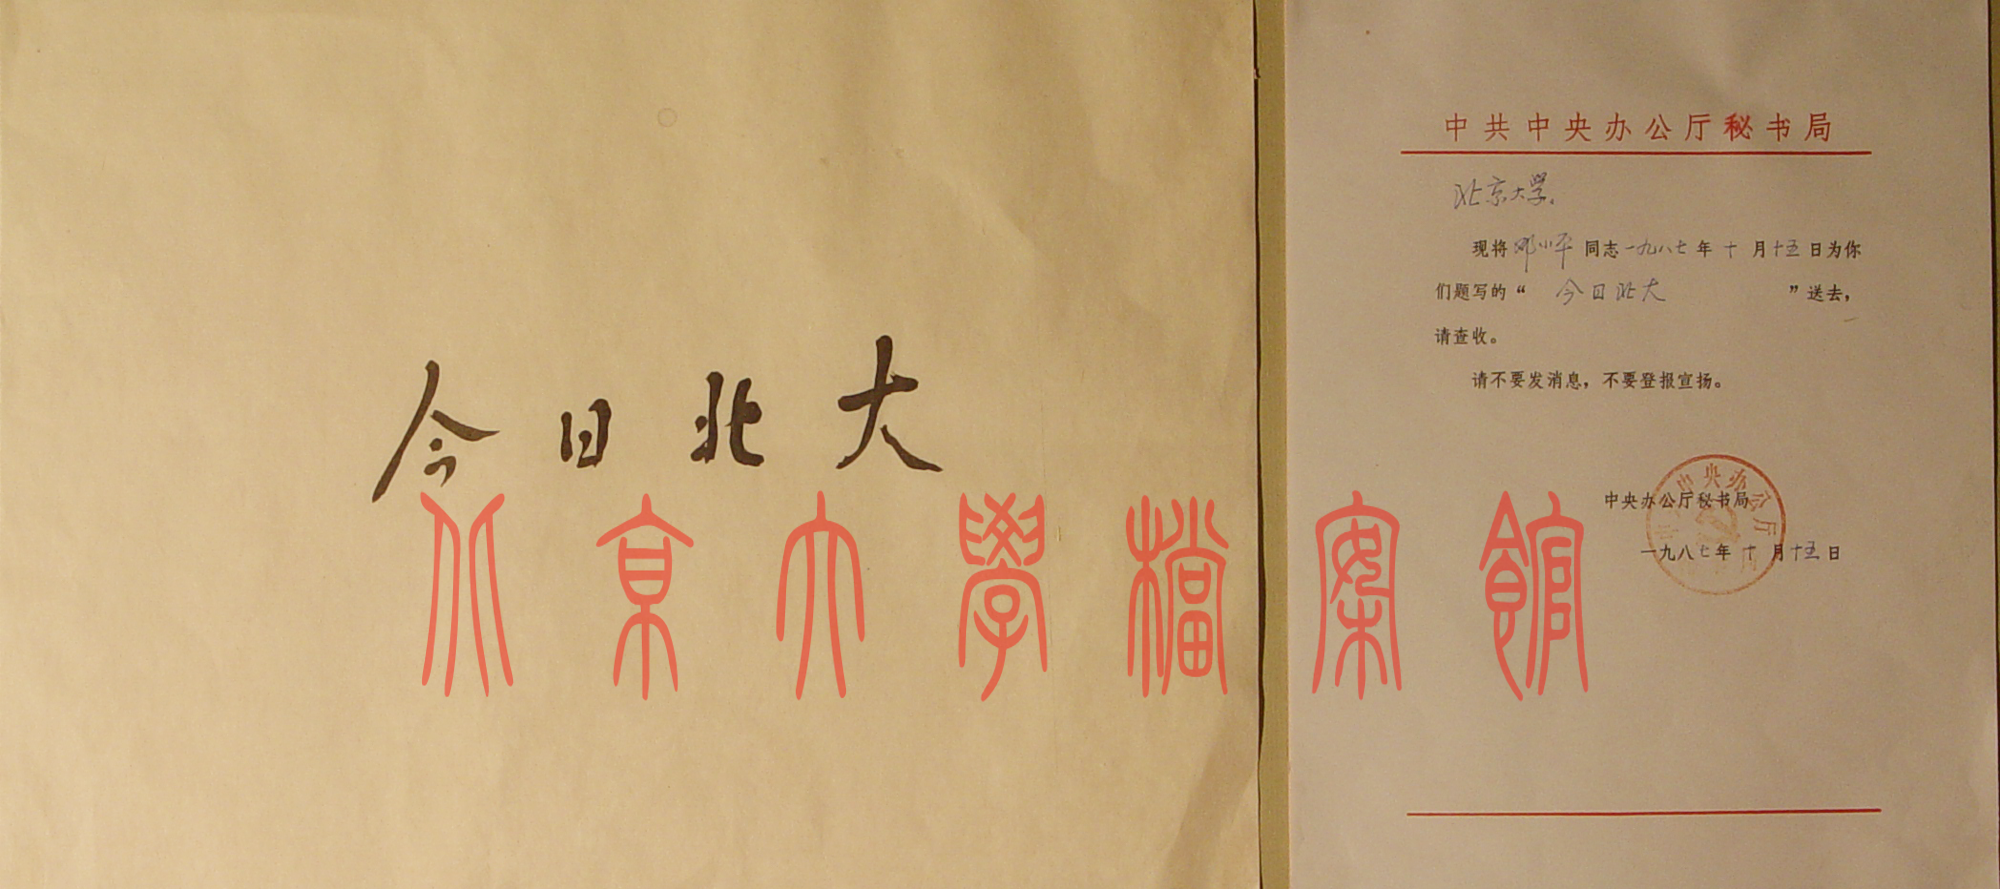 今日北大
中共中央办公厅秘书局
北京大学:
现将邓小平同志一九八七年十月十五日为你
们题写的“今日北大”送去,
请查收。
请不要发消息,不要登报宣扬。
中央办公厅秘书局
一九八七年十月十五日
中央办公厅
北京大學檔案館